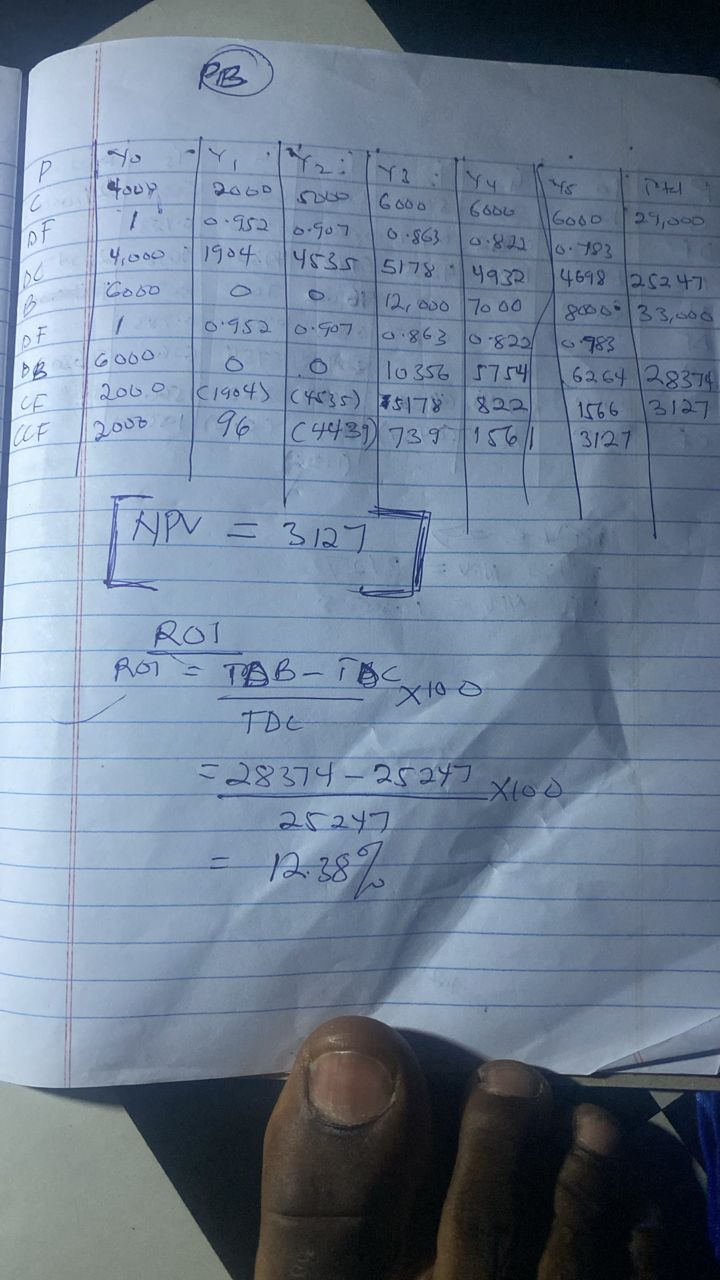 PB
P Y0 Y1 Y2 Y3 Y4 Y5 Ttl
C 4000 2000 5000 6000 6000 6000 29,000
DF 1 0.952 0.907 0.863 0.822 0.783
DC 4,000 1904 4535 5178 4932 4698 25247
B 6000 0 0 12,000 7000 8000 33,000
DF 1 0.952 0.907 0.863 0.822 0.783
DB 6000 0 0 10356 5754 6264 28374
CF 2000 (1904) (4535) 5178 822 1566 3127
CCF 2000 96 (4439) 739 1561 3127
NPV = 3127
ROI
ROI = TDB - TDC X100
TDC
= 28374 - 25247 X100
25247
= 12.38%